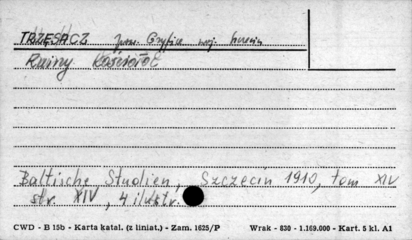 TRZĘSACZ pow. Gryfice woj. Szczecin
Ruiny Kościoła
Baltische Studien, Szczecin 1910, tom XIV
str. XIV, 4 ilustr.
CWD - B 15b - Karta katal. (z liniat.) - Zam. 1625/P Wrak - 830 - 1.169.000 - Kart. 5 kl. A1